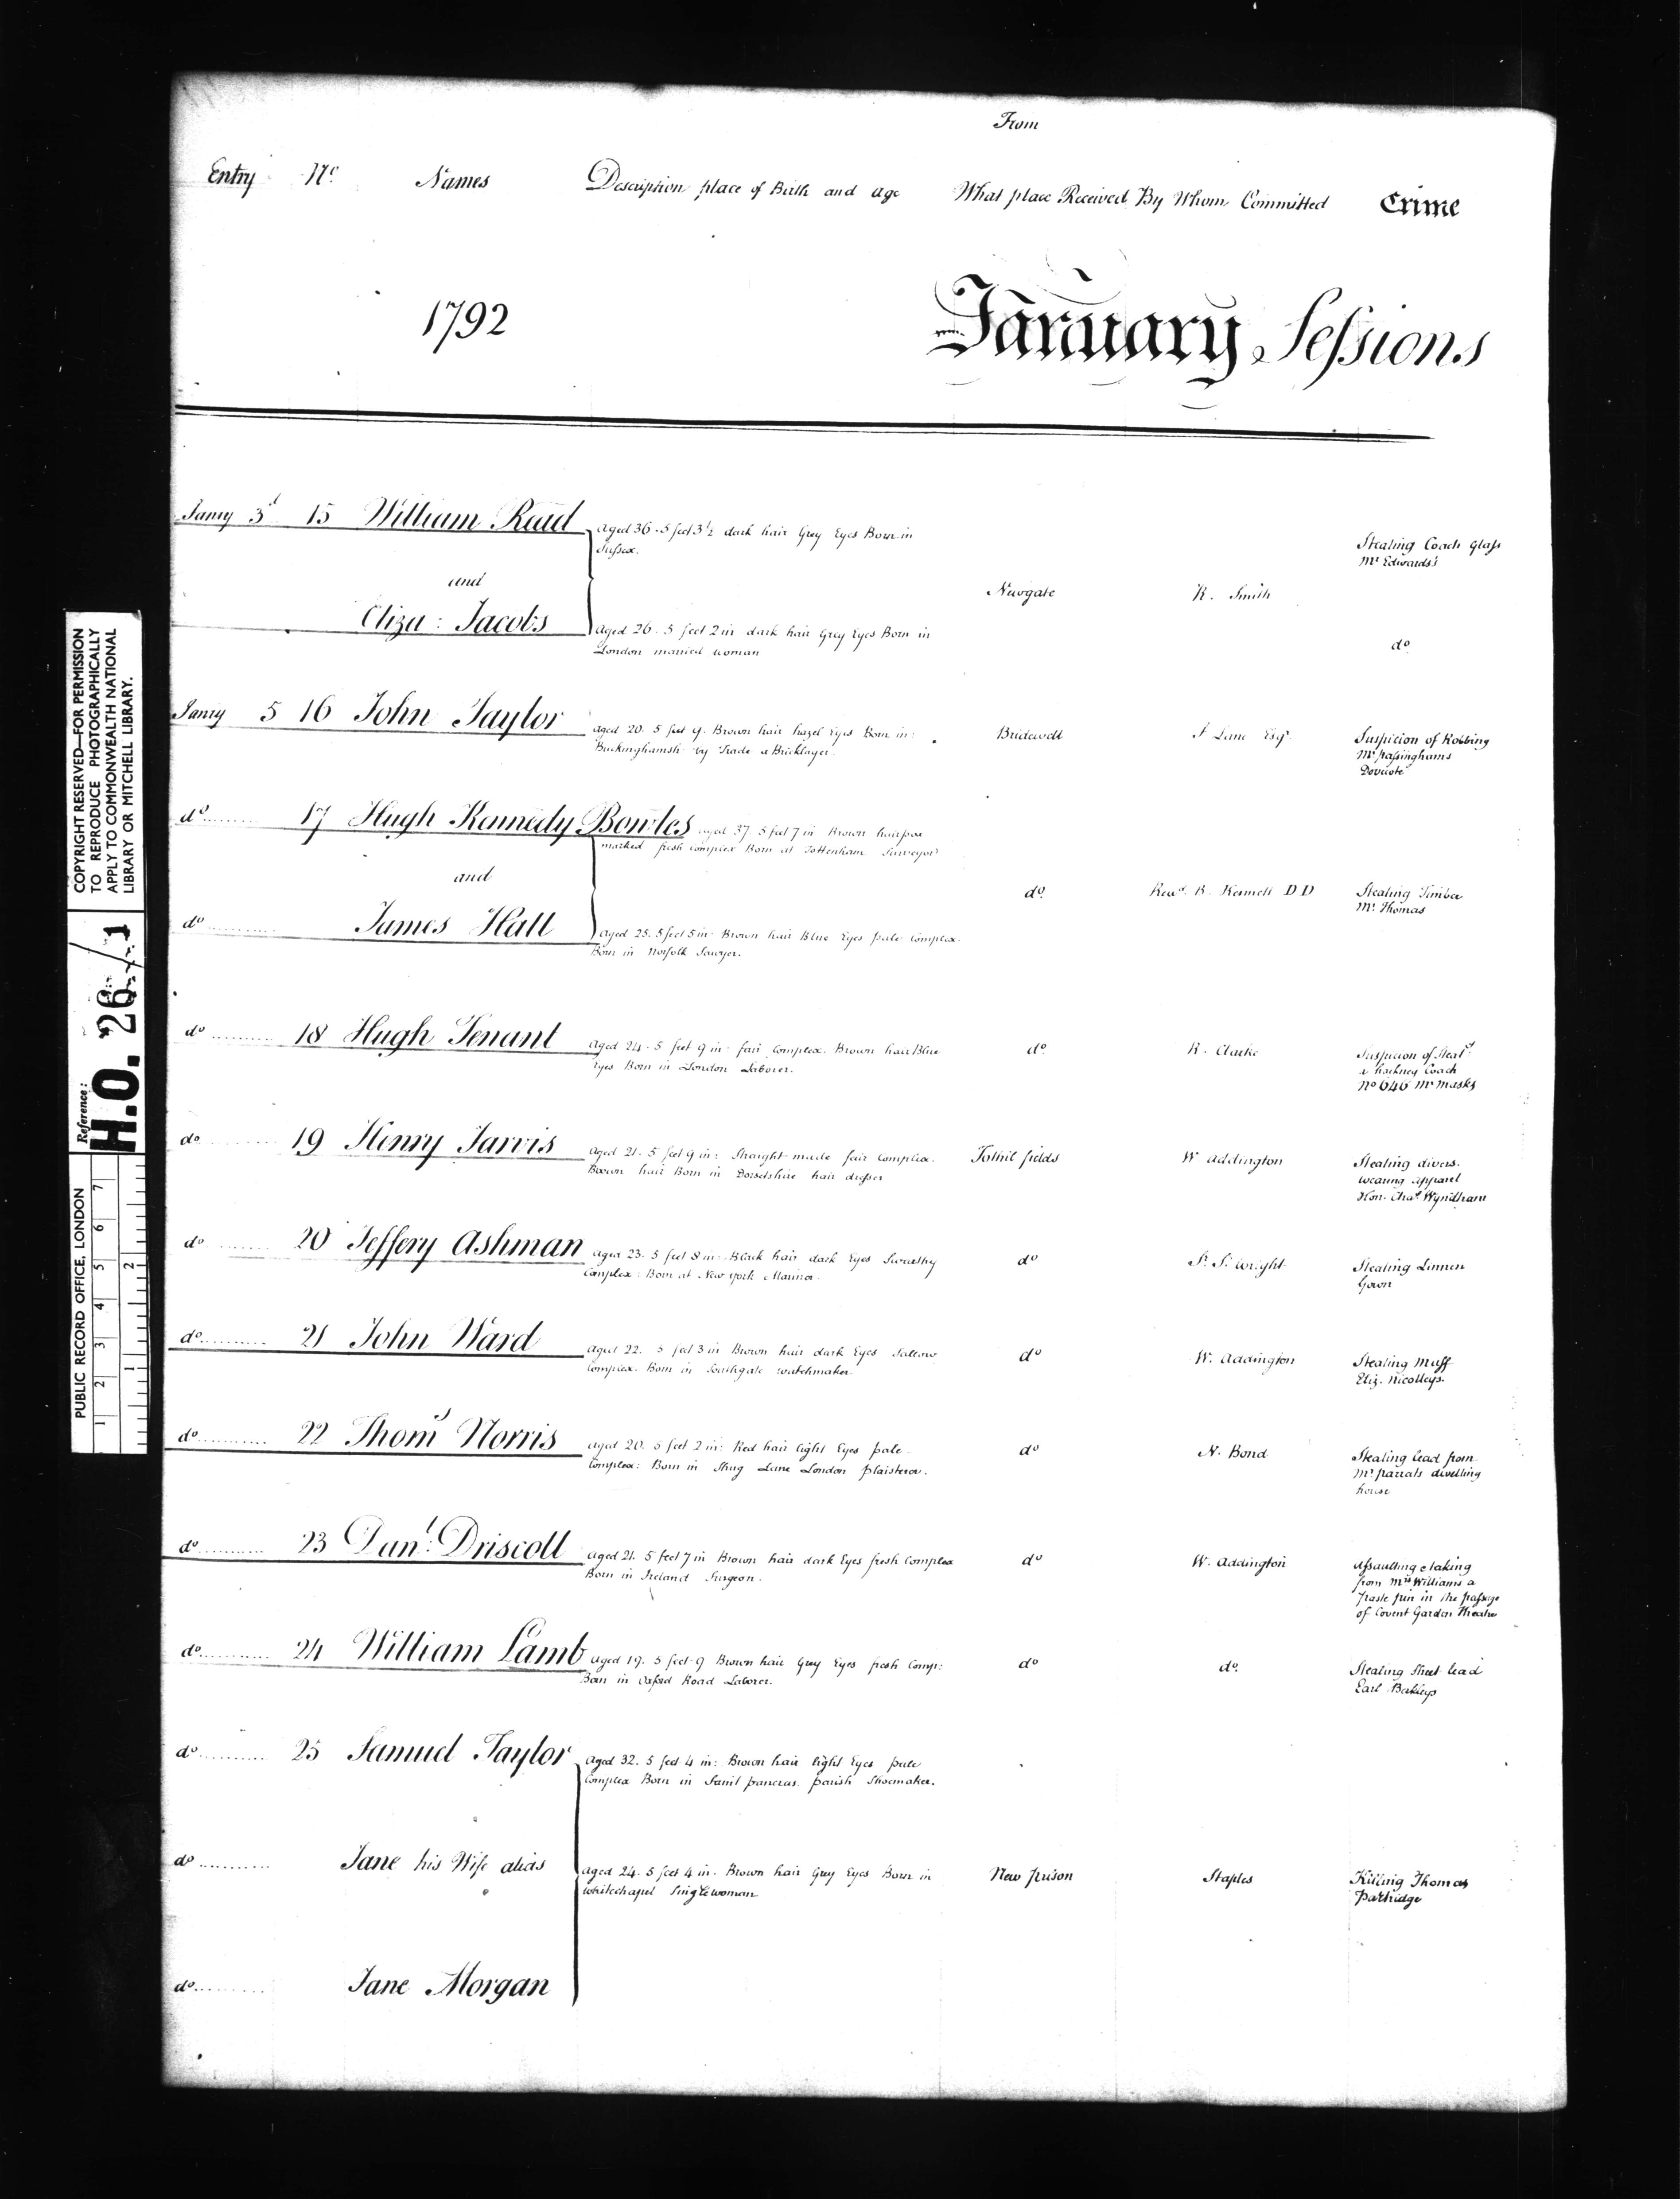 From
Entry No Names Description place of Birth and age What place Received By Whom Committed Crime
1792 January Sessions
Janry 3d 15 William Read Aged 36. 5 feet 3½ dark hair Grey Eyes Born in
Sussex.
Stealing Coach Glass
Mr Edwards's
and
Newgate R. Smith
Eliza: Jacobs Aged 26. 5 feet 2 in dark hair Grey Eyes Born in
London married woman
do
Janry 5 16 John Taylor aged 20. 5 feet 9. Brown hair hazel Eyes Born in
Buckinghamsh by Trade a Bricklayer.
Bridewell F Lane Esqr.
Suspicion of Robbing
Mr passinghams
Dovecote
do 17 Hugh Kennedy Bowles aged 37 5 feet 7 in Brown hair pox
marked fresh complex Born at Tottenham Surveyor
and
do Revd. R. Kennett D D Stealing Timber
Mr Thomas
do James Hall aged 25. 5 feet 5 in Brown hair Blue Eyes pale complex.
Born in Norfolk Sawyer.
do 18 Hugh Tenant aged 24. 5 feet 9 in fair complex. Brown hair Blue
Eyes Born in London Laborer.
do R. Clarke Suspicion of Stealg
a hackney Coach
No 646 Mr Masks
do 19 Henry Jarvis aged 21. 5 feet 9 in: Straight made fair complex.
Brown hair Born in Dorsetshire hair dresser
Tothil fields W Addington Stealing divers.
wearing apparel
Hon. Chas Wyndham
do 20 Jeffery Ashman aged 23. 5 feet 8 in. Black hair dark Eyes Swarthy
Complex: Born at New York Mariner.
do S. S. Wright Stealing Linnen
Gown
do 21 John Ward aged 22. 5 feet 3 in Brown hair dark Eyes Sallow
complex. Born in Southgate watchmaker.
do W. Addington Stealing Muff
Eliz. Nicolleys.
do 22 Thoms Norris aged 20. 5 feet 2 in: Red hair light Eyes pale
complex: Born in Shug Lane London plaisterer.
do N. Bond Stealing lead from
Mr parrats dwelling
house
do 23 Danl: Driscoll aged 21. 5 feet 7 in Brown hair dark Eyes fresh Complex
Born in Ireland Surgeon.
do W. Addington Assaulting & taking
from Mrs Williams a
paste pin in the passage
of Covent Garden Theatre
do 24 William Lamb aged 19. 5 feet 9 Brown hair Grey Eyes fresh Comp:
Born in Oxford Road Laborer.
do do Stealing Sheet lead
Earl Berkleys
do 25 Samuel Taylor aged 32. 5 feet 4 in: Brown hair light Eyes pale
complex Born in Saint pancras parish Shoemaker.
do Jane his Wife alias aged 24. 5 feet 4 in. Brown hair Grey Eyes Born in
Whitechapel Singlewoman
New prison Staples Killing Thomas
Partridge
do Jane Morgan
COPYRIGHT RESERVED—FOR PERMISSION
TO REPRODUCE PHOTOGRAPHICALLY
APPLY TO COMMONWEALTH NATIONAL
LIBRARY OR MITCHELL LIBRARY.
Reference:
H.O. 26/1
PUBLIC RECORD OFFICE, LONDON
1 2 3 4 5 6 7
1 2